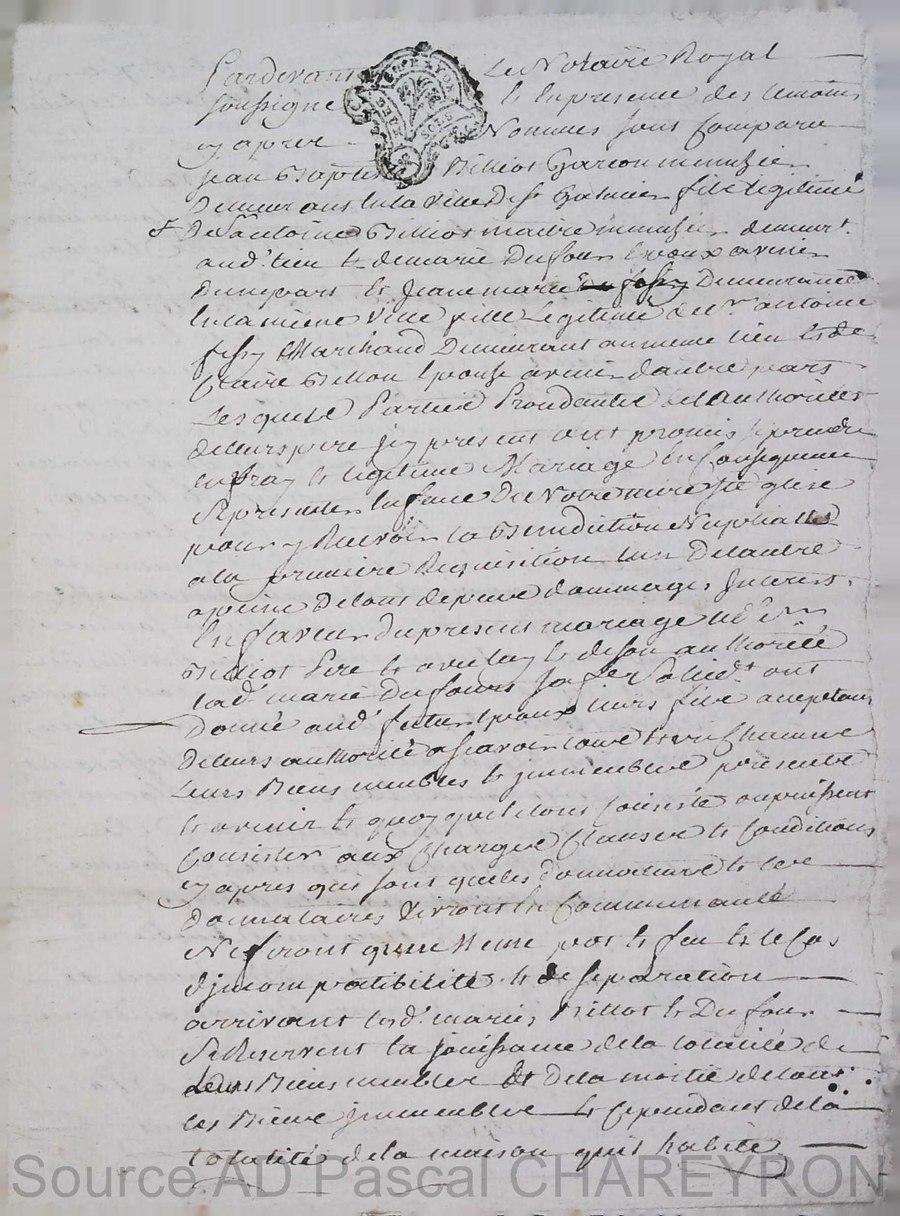 Pardevant Le Notaire Royal
soussigné et En presence des temoins
cy apres Nommés sont Comparu
Jean Baptiste Billiot Garcon menuzier
Demeurant En la ville de St Galmier fils legitime
de S. antoine Billiot maitre menuzier demeurt.
aud. lieu et de marie Dufour Epoux a venir
Dune part Et Jeanne marie Demeurante
En la meme Ville fille Legitime de Sr. antoine
fessy Marchand Demeurant au meme lieu Et de
Claire Billion Epouse a venir dautre part
Lesquels Parties Procedantes de Lauthorités
de leurs pere jcy present ont promis se prendre
en vray et legitime Mariage En Consequence
Se presenter En face de Notre mere Ste Eglise
pour y Recevoir la Benediction Nuptialle
a la premiere Requisition Lun De lautre
a peine De tous depens dommages Interest
En faveur du present mariage led. Sr.
Billiot Pere Et avec luy Et de son authorité
lad. marie Dufour sa fe solid.t ont
donné aud. futur Epoux leurs fils acceptant
de leurs authorité a scavoir tous Et un Chacune
Leurs Biens meubles Et jmmeubles presents
Et avenir Et quoy quils Consister
aux Charges Clauses Et Conditions
cy apres qui sont que les donnateurs Et les
donnataires Vivront En Communauté
Ne feront qune Meme pot Et feu Et le Cas
djncompatibilité Et de separation
arrivant lesd. mariés Billiot Et Dufour
Se Reservent la jouissance de la totalité de
Leurs Biens meubles Et De la moitié de tous
les Biens jmmeubles Et Cependant de la
totalité de la maison quis habite
Source AD Pascal CHAREYRON